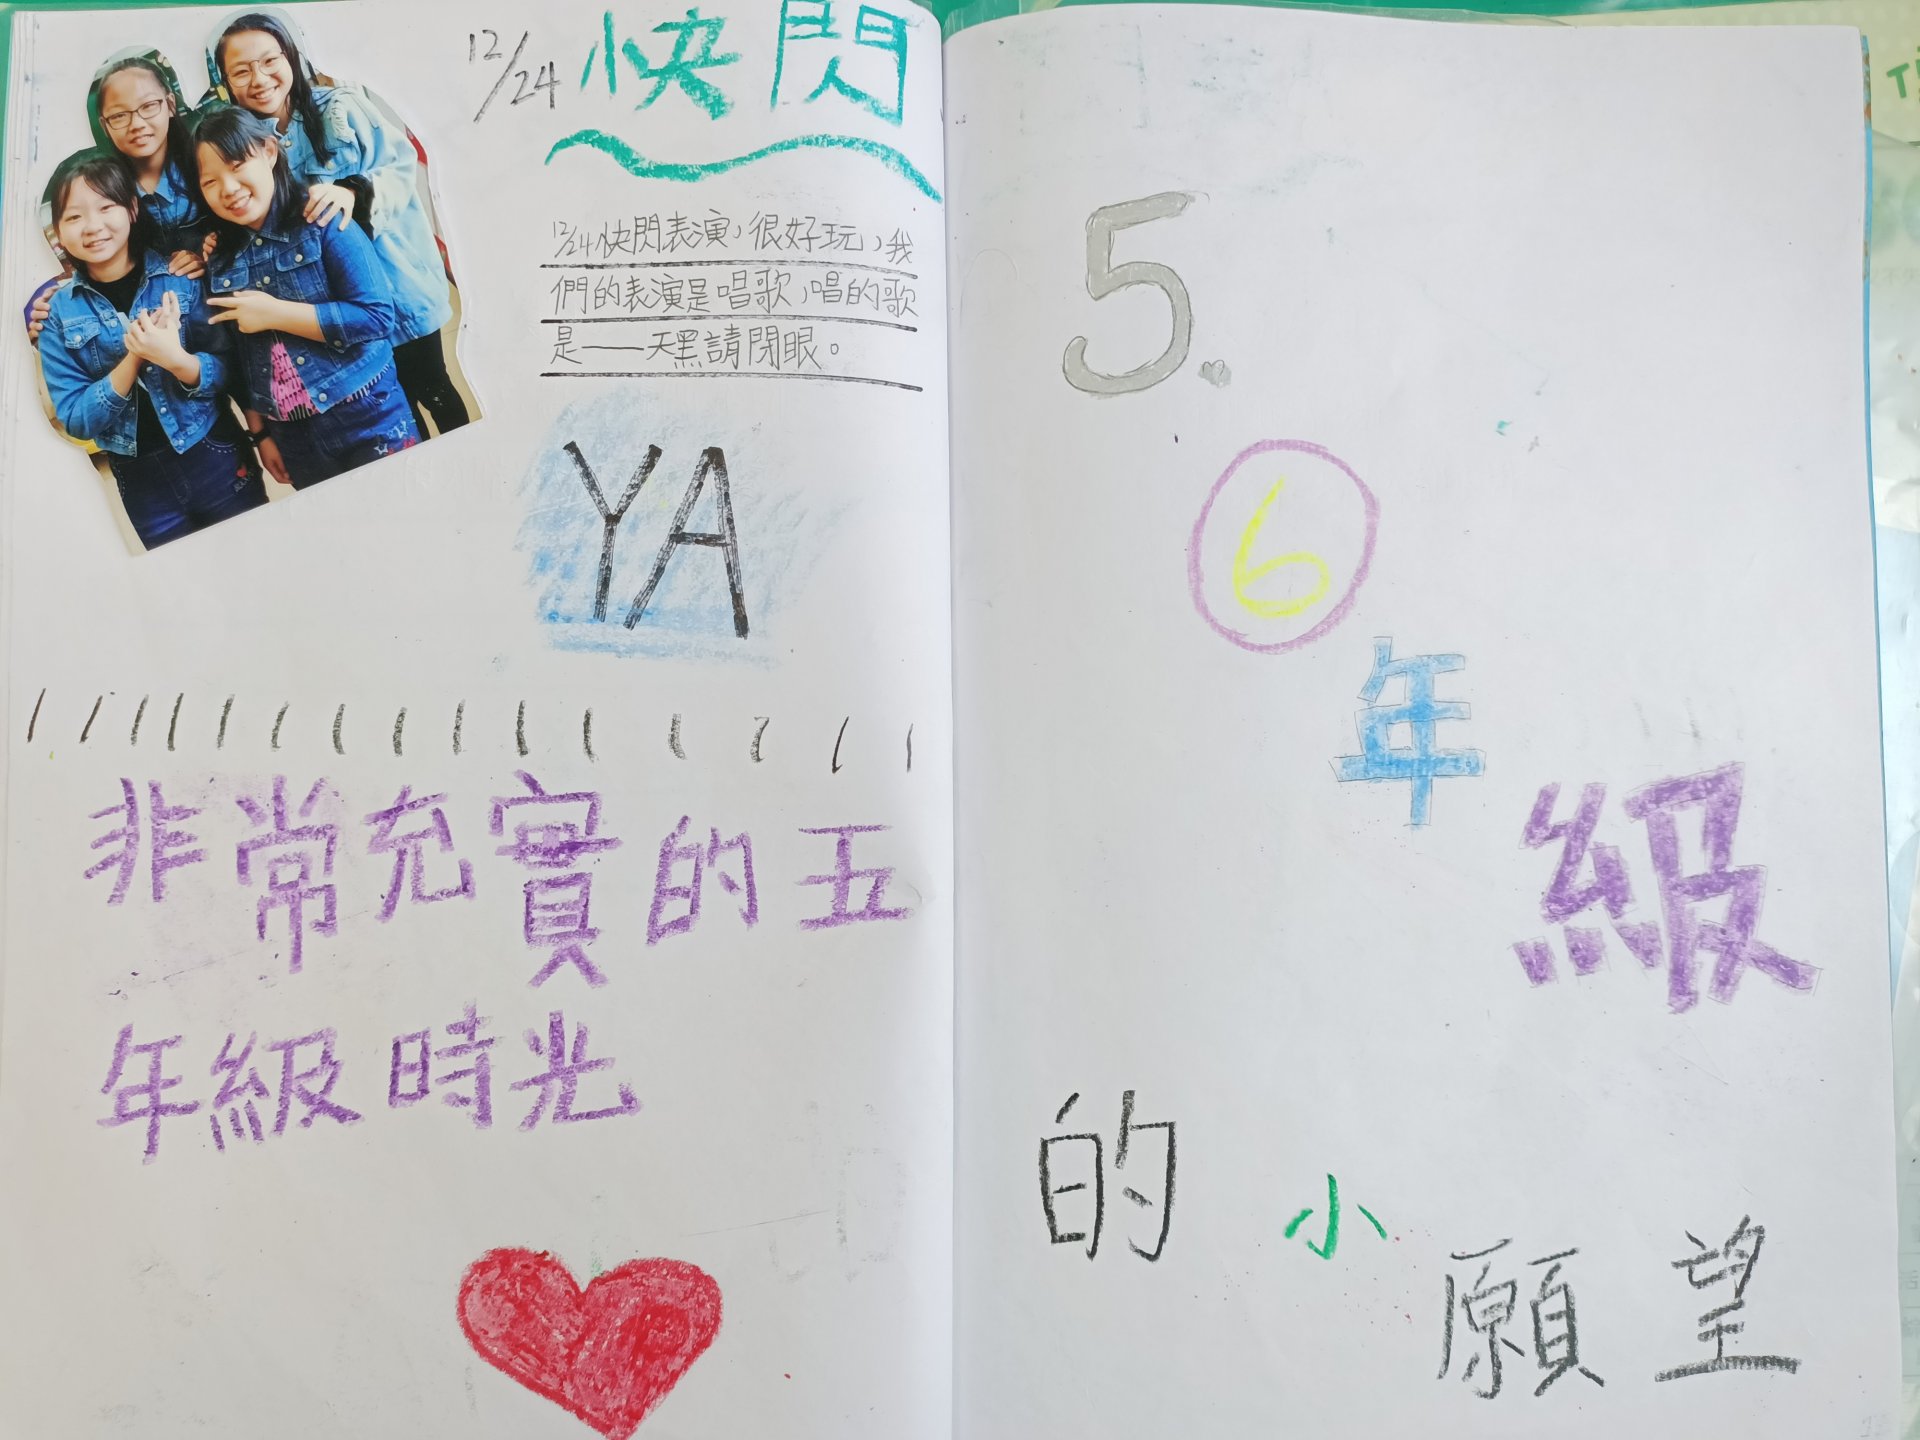 12/24 快閃
12/24快閃表演,很好玩,我
們的表演是唱歌,唱的歌
是——天黑請閉眼。
YA
非常充實的五
年級時光
5.
6
年
級
的
小
願
望